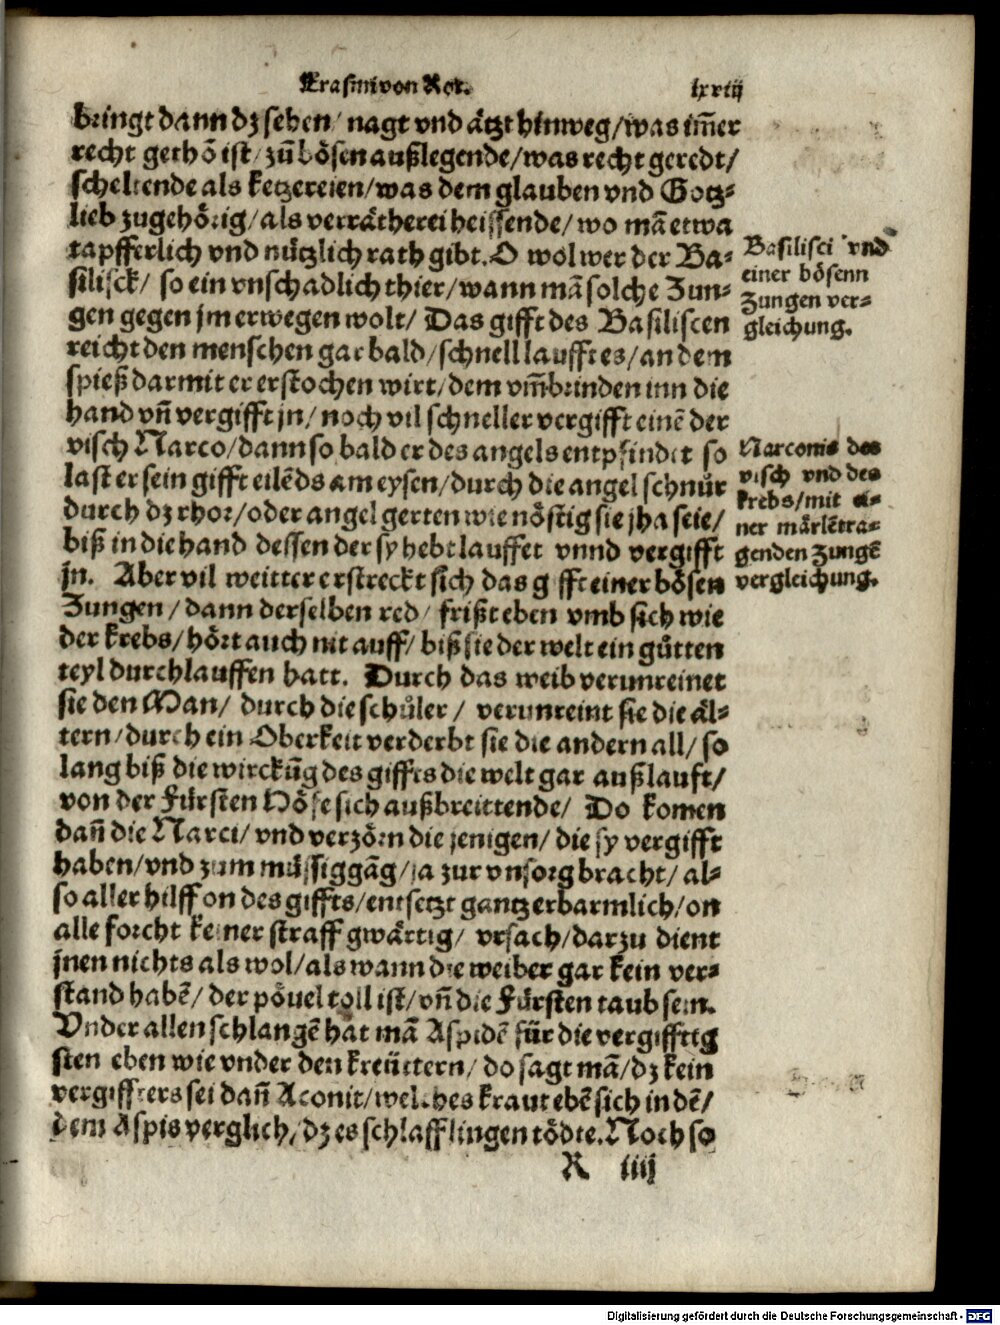 Erasmi von Rot. lxxiij
bringt dann dz sehen/ nagt vnd åtzt hinweg/was im̃er
recht gethõ ist/ zů bösen außlegende/was recht geredt/
scheltende als ketzereien/was dem glauben vnd Gotz=
lieb zugehörig/als verråtherei heissende/ wo mã etwa
tapfferlich vnd nützlich rath gibt. O wol wer der Ba=
silisck/ so ein vnschadlich thier/wann mã solche Zun=
gen gegen jm erwegen wolt/ Das gifft des Basiliscen
reicht den menschen gar bald/schnell laufft es/an dem
spieß darmit er erstochen wirt/dem vm̃bringenden inn die
hand vñ vergifft jn/ noch vil schneller vergifft einẽ der
visch Narco/dann so bald er des angels entpfindet so
last er sein gifft eilẽds am eysen/durch die angel schnůr
durch dz rhor/oder angel gerten wie nöstig sie jha seie/
biß in die hand dessen der sy hebt lauffet vnnd vergifft
jn. Aber vil weitter erstreckt sich das gifft einer bösen
Zungen/dann derselben red/ frißt eben vmb sich wie
der krebs/hört auch nit auff/ biß sie der welt ein gůtten
teyl durchlauffen hatt. Durch das weib verunreinet
sie den Man/ durch die schůler/ verunreint sie die ål=
tern/durch ein Oberkeit verderbt sie die andern all/ so
lang biß die wirckũg des giffts die welt gar außlauft/
von der Fürsten Höfe sich außbreittende/ Do komen
dañ die Narci/vnd verzörn die jenigen/ die sy vergifft
haben/vnd zum müssiggãg/ja zur vnsorg bracht/ al=
so aller hilff on des giffts/entsetzt gantz erbarmlich/on
alle forcht keiner straff gwårtig/ vrsach/darzu dient
jnen nichts als wol/als wann die weiber gar kein ver=
stand habẽ/ der pöuel toll ist/vñ die Fürsten taub sein.
Vnder allen schlangẽ hat mã Aspidẽ für die vergifftig
sten eben wie vnder den kreüttern/ do sagt mã/dz kein
vergiffters sei dañ Aconit/welches kraut ebẽ sich in dẽ/
dem Aspis verglich/dz es schlafflingen tödte. Noch so
R iiij
Basilisci vnd
einer bösenn
Zungen ver=
gleichung.
Narconis des
visch vnd des
krebs/mit ei=
ner mårlẽtra=
genden Zungẽ
vergleichung.
Digitalisierung gefördert durch die Deutsche Forschungsgemeinschaft - DFG